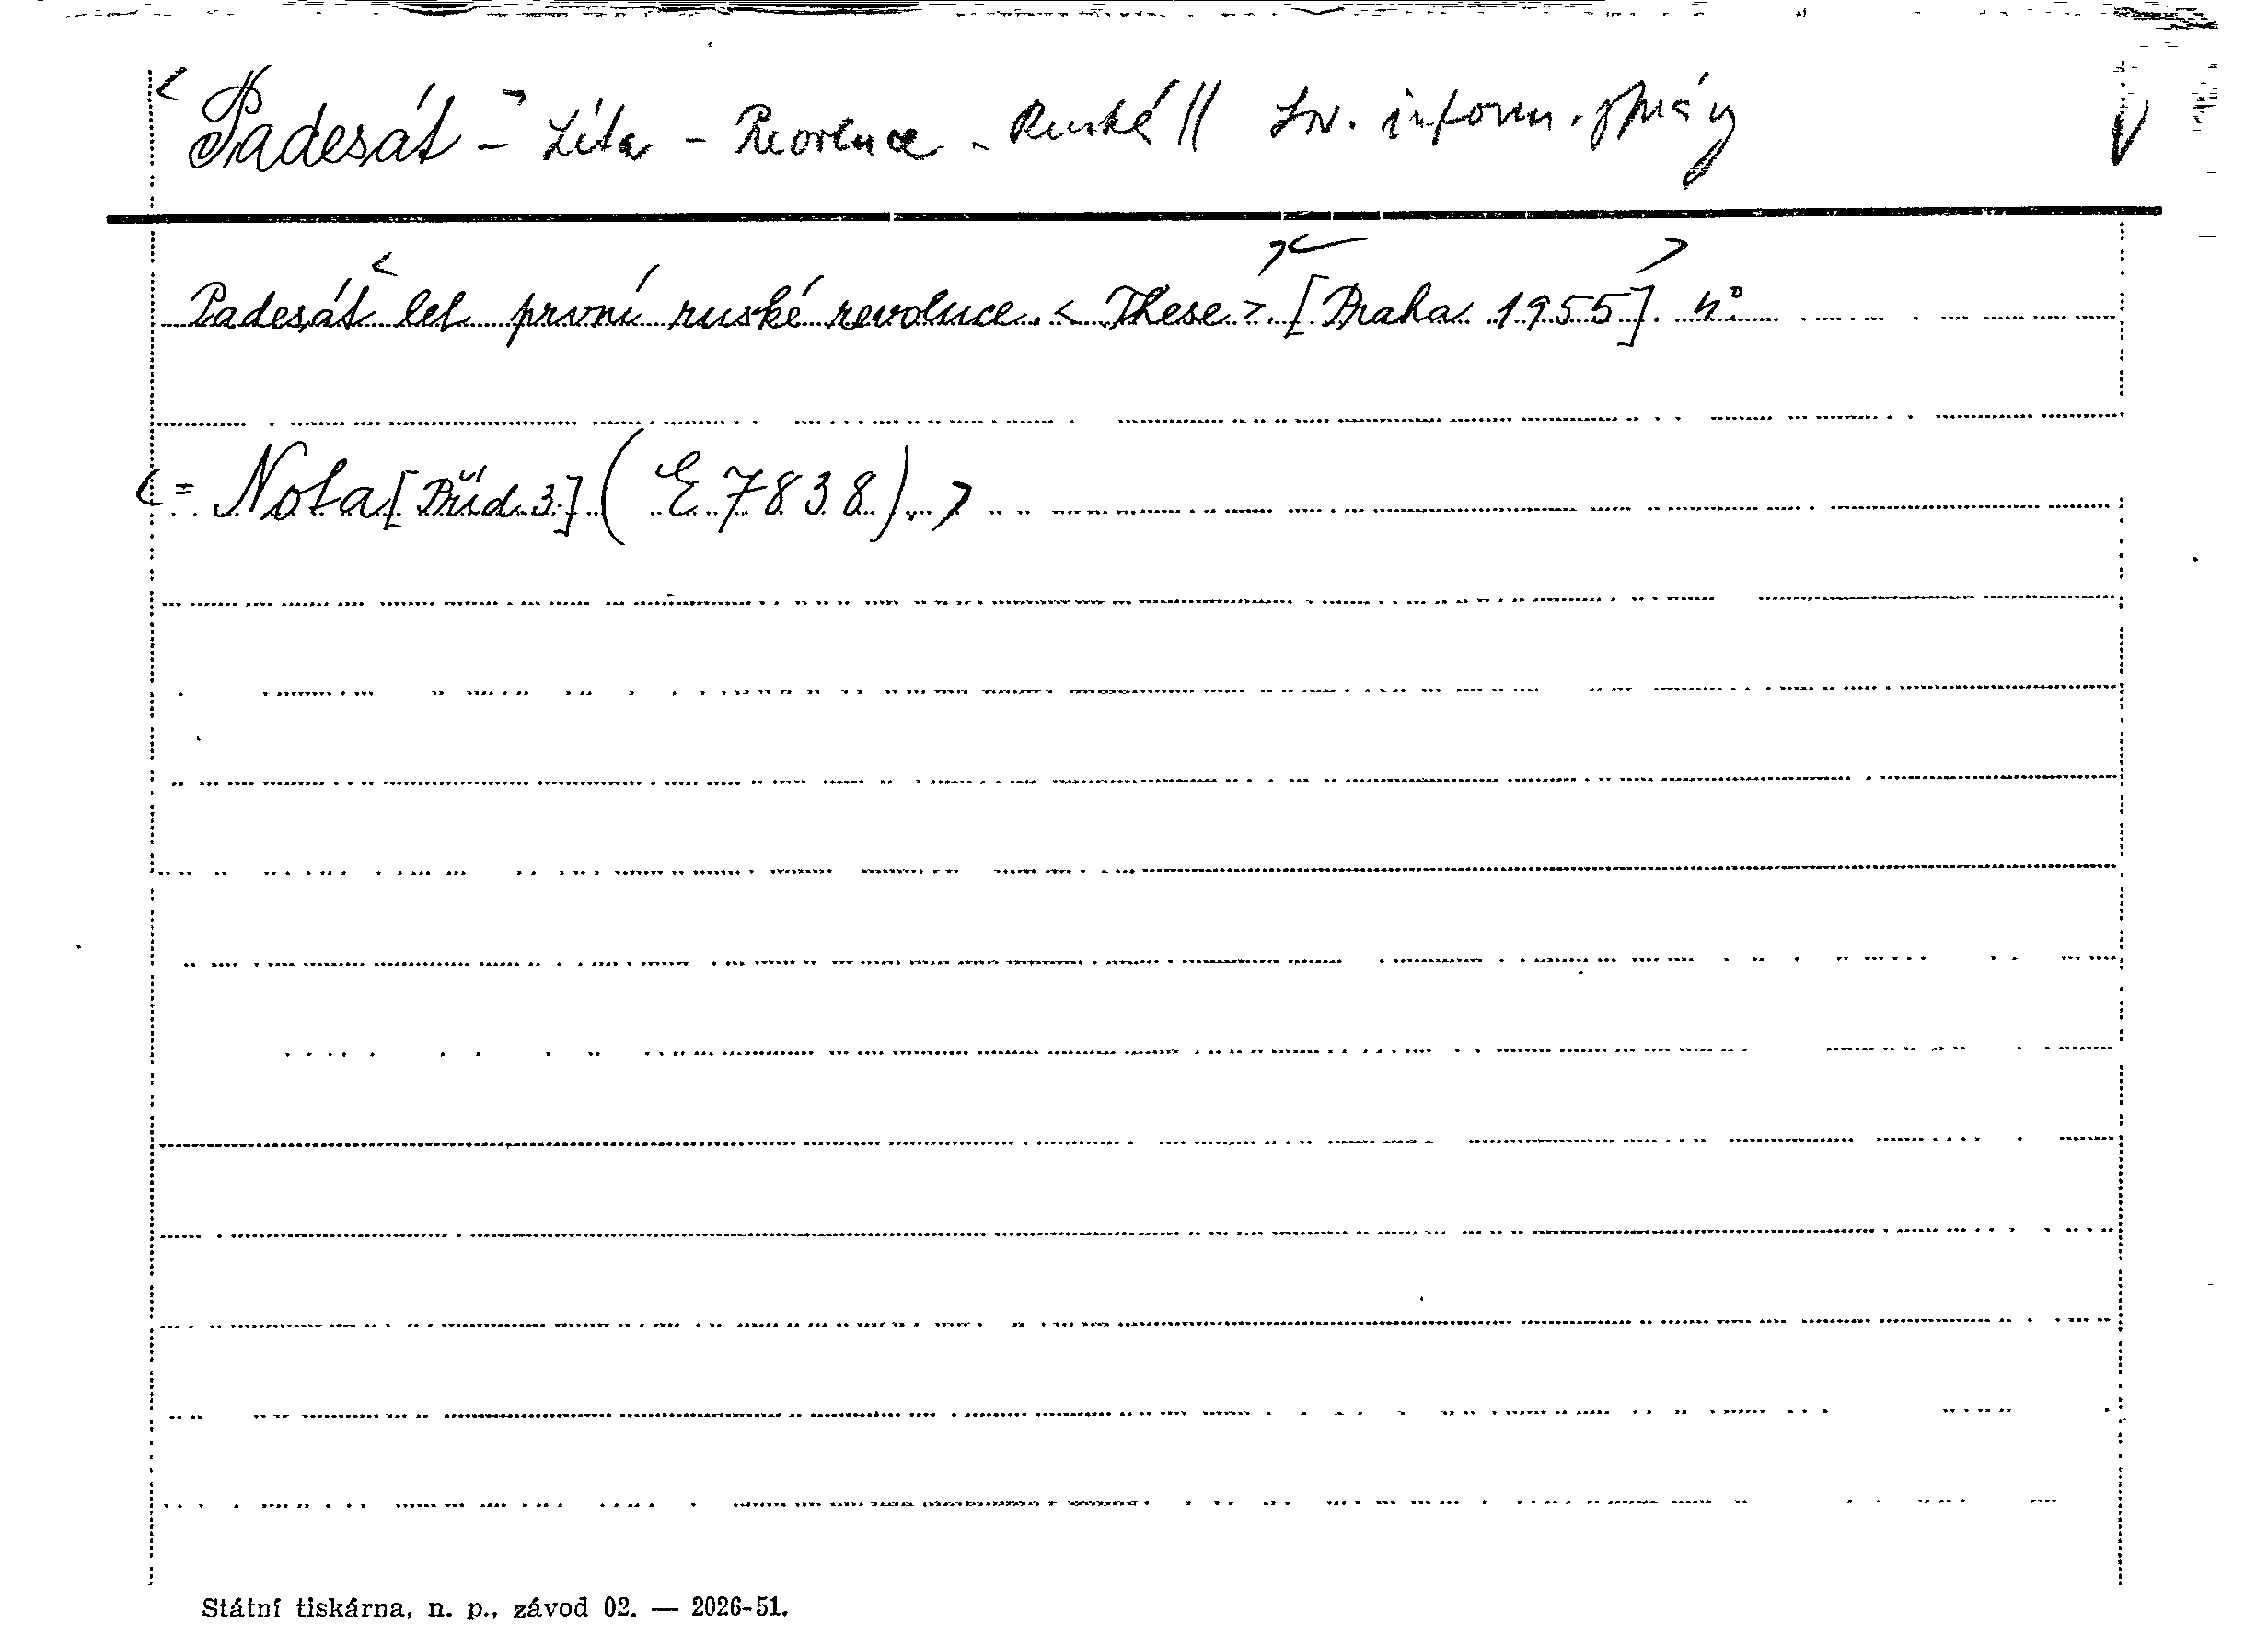 < Padesát - > Léta - Revoluce - Ruská || inform. zprávy V
Padesát < let první ruské revoluce. < These >. > < [Praha 1955]. > 4°
< = Nota [Příd. 3] (E 7838). >
Státní tiskárna, n. p., závod 02. — 2026-51.